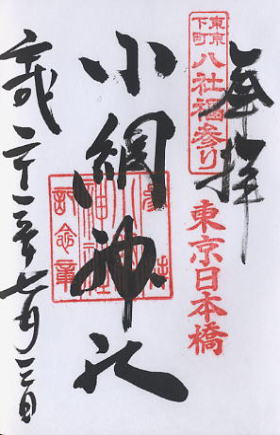 奉拝
東京下町
八社福参り
東京日本橋
小網神社
平成二十一年七月三日